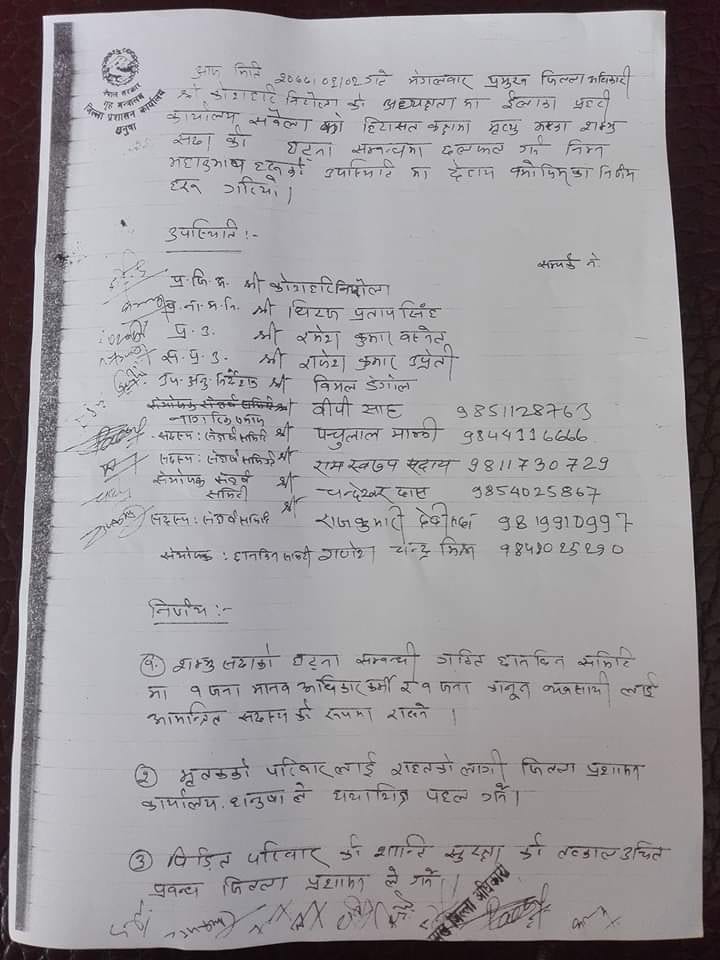 नेपाल सरकार
गृह मन्त्रालय
जिल्ला प्रशासन कार्यालय
धनुषा
आज मिति २०७७।०३।०२ गते मंगलवार प्रमुख जिल्ला अधिकारी
श्री कोशहरि निरौला को अध्यक्षता मा ईलाका प्रहरी
कार्यालय सबैला को हिरासत कक्षमा मृत्यु भएका शम्भु
सदा को घटना सम्बन्धमा छलफल गर्न निम्न
महानुभाव हरुको उपस्थिति मा देहाय बमोजिमका निर्णय
हरु गरियो।
उपस्थिति :-
सम्पर्क नं.
प्र.जि.अ. श्री कोशहरि निरौला
श्री धिरज प्रताप सिंह
प्र. उ. श्री रमेश कुमार बस्नेत
स.प्र.उ. श्री राजेश कुमार उप्रेती
उप. अनु. निर्देशक श्री बिमल डंगोल
श्री वीपी साह 9851128763
सदस्य: संघर्ष समिति श्री पञ्चुलाल माझी 9844116666
सदस्य: संघर्ष समिति श्री राम स्वरुप सदाय 9811730729
संयोजक संघर्ष समिती श्री चन्देश्वर दास 9854025867
सदस्य: संघर्ष समिति श्री राजकुमारी देवी सदा 9819910997
संयोजक: छानविन समिती गणेश चन्द्र मिश्र
निर्णय :-
१. शम्भु सदाको घटना सम्बन्धी गठित छानविन समिति
मा १ जना मानव अधिकार कर्मी र १ जना कानून व्यवसायी लाई
आमन्त्रित सदस्य को रुपमा राख्ने ।
२ मृतकको परिवार लाई राहतको लागी जिल्ला प्रशासन
कार्यालय, धनुषा ले यथाशिघ्र पहल गर्ने।
३ पिडित परिवार को शान्ति सुरक्षा को तत्काल उचित
प्रवन्ध जिल्ला प्रशासन ले गर्ने।
प्रमुख जिल्ला अधिकारी